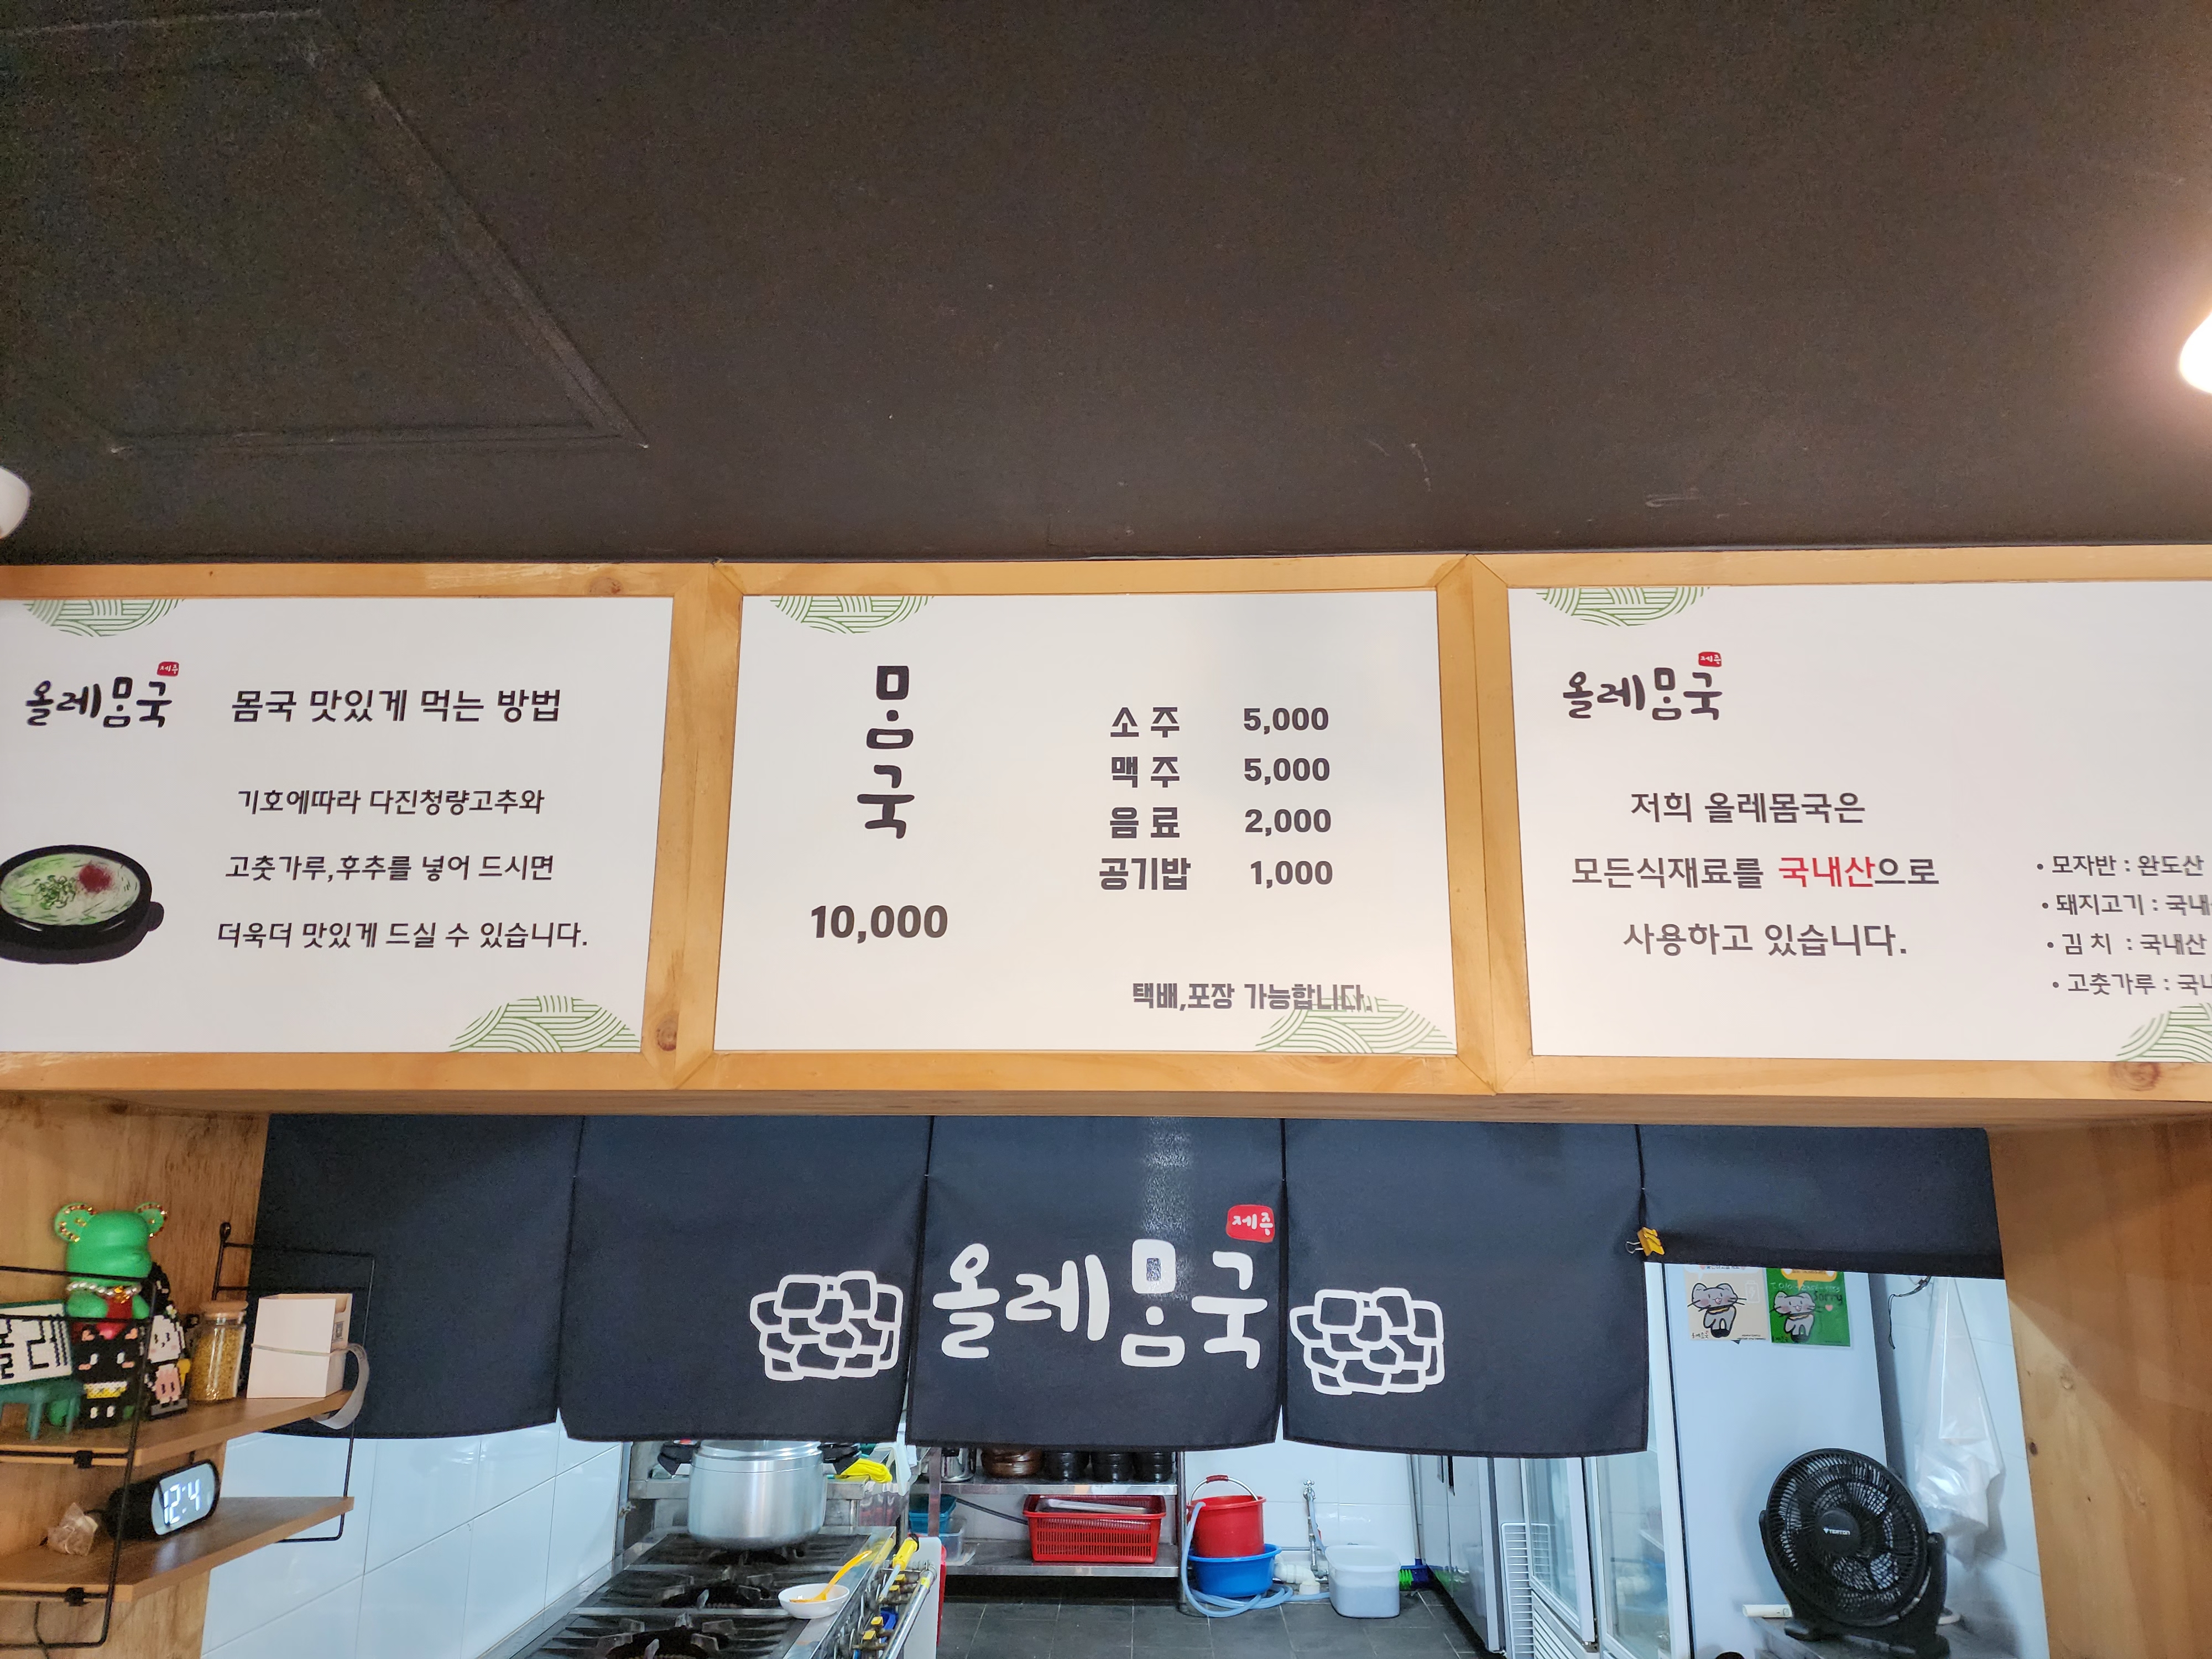 제주
올레몸국
몸국 맛있게 먹는 방법
기호에따라 다진청량고추와
고춧가루,후추를 넣어 드시면
더욱더 맛있게 드실 수 있습니다.
몸국
10,000
소주 5,000
맥주 5,000
음료 2,000
공기밥 1,000
택배,포장 가능합니다.
제주
올레몸국
저희 올레몸국은
모든식재료를 국내산으로
사용하고 있습니다.
• 모자반 : 완도산
• 돼지고기 : 국내
• 김치 : 국내산
• 고춧가루 : 국내
제주
올레몸국
올레
12:4
Sorry